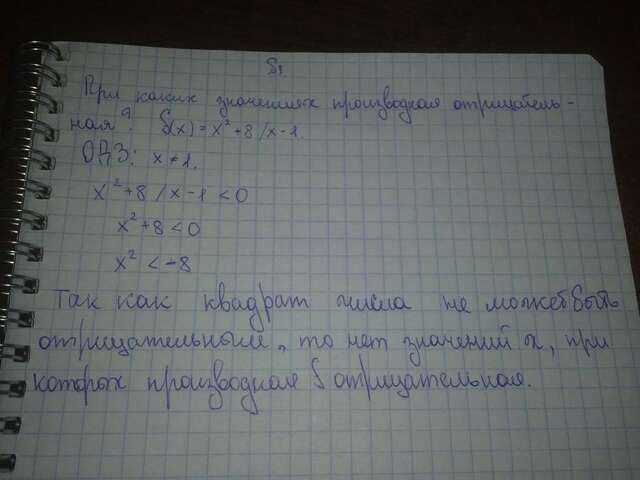 §1
При каких значениях производная отрицатель-
ная? f(x)=x²+8/x-1.
ОДЗ: x≠1.
x²+8/x-1<0
x²+8<0
x²<-8
Так как квадрат числа не может быть
отрицательным, то нет значений x, при
которых производная f отрицательная.